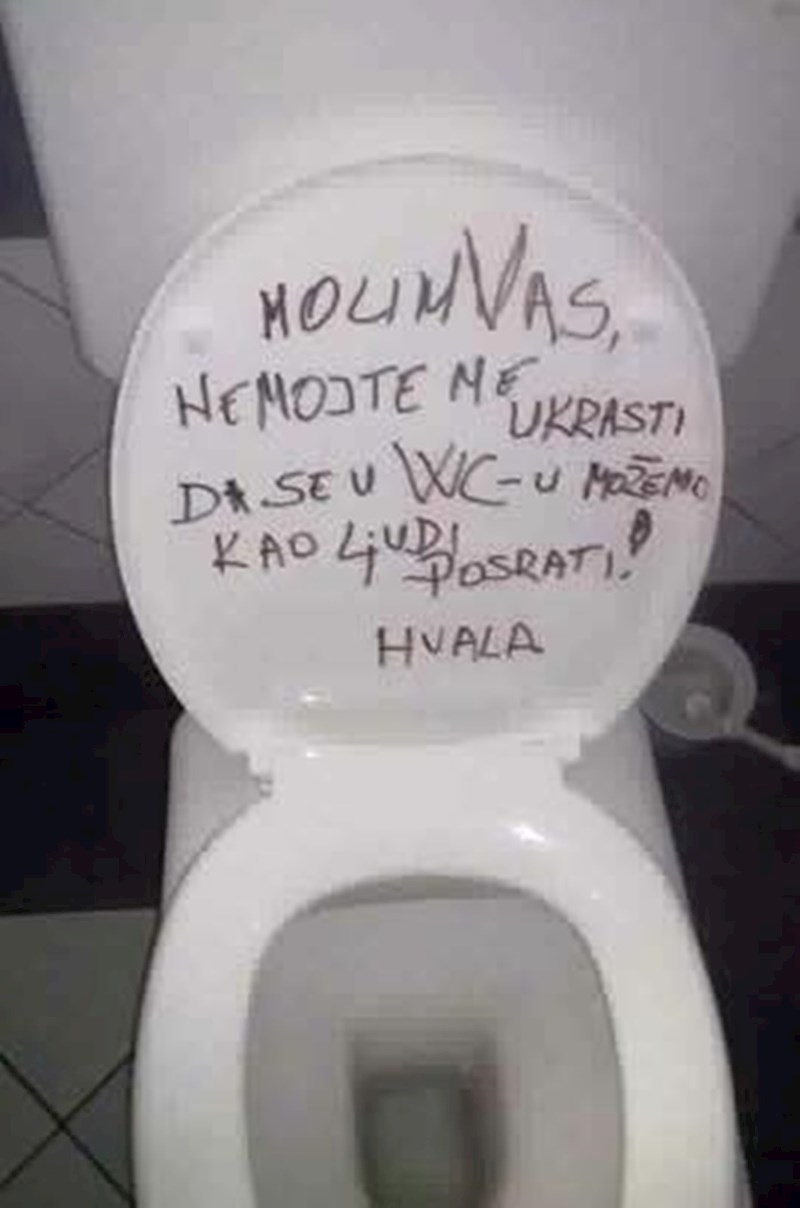 MOLIM VAS,
NEMOJTE ME UKRASTI
DA SE U WC-U MOŽEMO
KAO LJUDI POSRATI!
HVALA